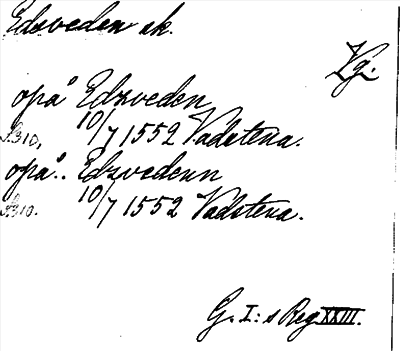 Edsveden sk.
Vg.
opå Edzveden
S.310, 10/7 1552 Vadstena.
opå.. Edzvedenn
S.310. 10/7 1552 Vadstena.
G. I:s Reg XXIII.